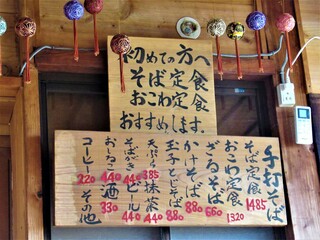 初めての方へ
そば定食
おこわ定食
おすすめします。
手打そば
そば定食 1485
おこわ定食 1320
ざるそば 660
かけそば 880
玉子とじそば 880
天ぷら 385 抹茶 440
そばがき 440 ビール 440
おしるこ 440 酒 330
コーヒー 220 その他